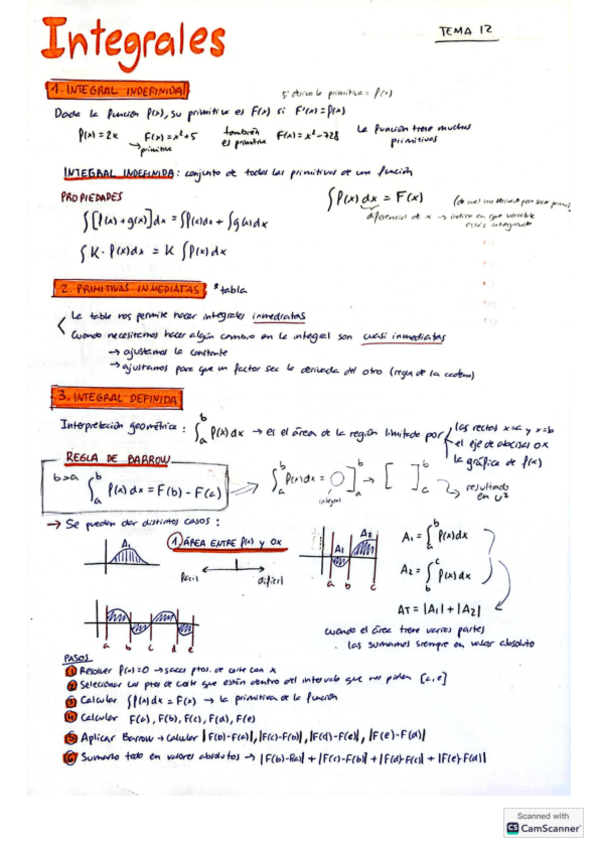 Integrales
TEMA 12
1. INTEGRAL INDEFINIDA
si derivo la primitiva = f(x)
Dada la función f(x), su primitiva es F(x) si F'(x) = f(x)
f(x) = 2x F(x) = x²+5 también es primitiva F(x) = x²-728 La función tiene muchas primitivas
→ primitiva
INTEGRAL INDEFINIDA: conjunto de todas las primitivas de una función
PROPIEDADES
∫f(x) dx = F(x)
diferencial de x → indica en que variable estás integrando
∫[f(x) + g(x)]dx = ∫f(x)dx + ∫g(x)dx
∫K · f(x)dx = K ∫f(x)dx
2. PRIMITIVAS INMEDIATAS * tabla
La tabla nos permite hacer integrales inmediatas
Cuando necesitemos hacer algún cambio en la integral son cuasi inmediatas
→ ajustamos la constante
→ ajustamos para que un factor sea la derivada del otro (regla de la cadena)
3. INTEGRAL DEFINIDA
Interpretación geométrica: ∫ₐᵇ f(x) dx → es el área de la región limitada por
las rectas x=a y x=b
el eje de abcisas OX
la gráfica de f(x)
REGLA DE BARROW
b>a ∫ₐᵇ f(x) dx = F(b) - F(a)
∫ₐᵇ f(x)dx = ○]ₐᵇ → [ ]ₐᵇ
integral
resultado en u²
→ Se pueden dar distintos casos:
1. ÁREA ENTRE f(x) y OX
A₁
fácil difícil
A₁ A₂
a b c
A₁ = ∫ₐᵇ f(x)dx
A₂ = ∫_b^c f(x)dx
AT = |A₁| + |A₂|
a b c d e
cuando el área tiene varias partes
las sumamos siempre en valor absoluto
PASOS
1 Resolver f(x)=0 → sacar ptos. de corte con x
2 Seleccionar los ptos de corte que están dentro del intervalo que nos piden [a,e]
3 Calcular ∫f(x)dx = F(x) → la primitiva de la función
4 Calcular F(a), F(b), F(c), F(d), F(e)
5 Aplicar Barrow → calcular |F(b)-F(a)|, |F(c)-F(b)|, |F(d)-F(c)|, |F(e)-F(d)|
6 Sumarlo todo en valores absolutos → |F(b)-F(a)| + |F(c)-F(b)| + |F(d)-F(c)| + |F(e)-F(d)|
Scanned with
CS CamScanner